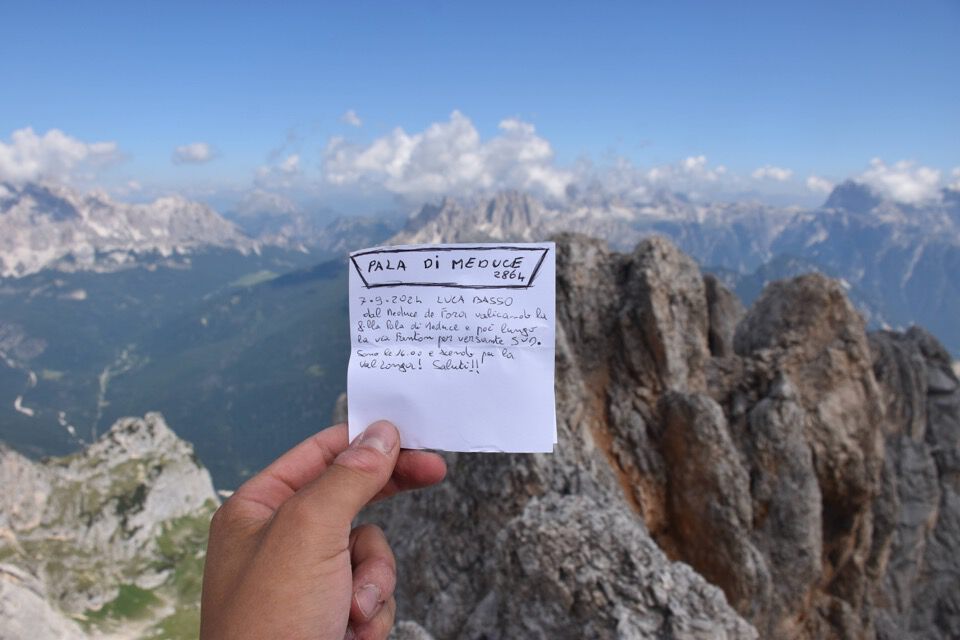 PALA Di MEDUCE
2864
7.9.2024 LUCA BASSO
dal Meduce de Fora valicando la
Pala di Meduce e poi lungo
la via Fanton per versante SUD.
Sono le 16.00 e scendo per la
val Longa! Saluti!!